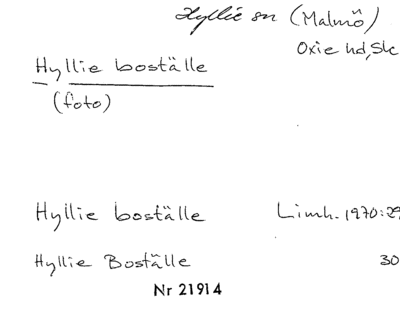 Hyllie sn (Malmö)
Oxie hd, Sk
Hyllie boställe
(foto)
Hyllie boställe Limh. 1970:29
Hyllie Boställe 30
Nr 21914